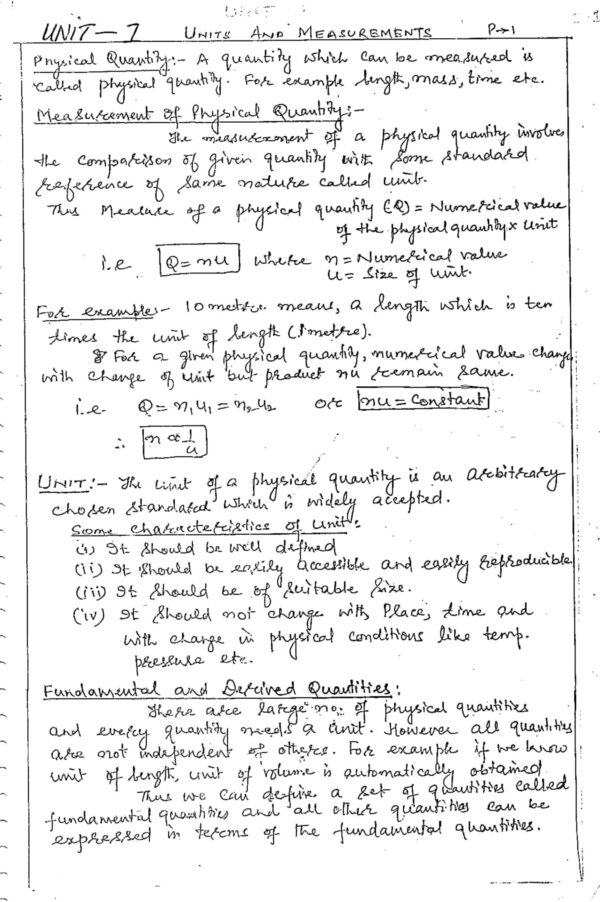 UNIT
UNIT-1 UNITS AND MEASUREMENTS P→1
Physical Quantity:- A quantity which can be measured is
called physical quantity. For example length, mass, time etc.
Measurement of Physical Quantity:-
The measurement of a physical quantity involves
the comparison of given quantity with some standard
reference of same nature called unit.
Thus Measure of a physical quantity (Q) = Numerical value
of the physical quantity x unit
i.e Q = nu where n = Numerical value
u = size of unit.
For example:- 10 metre means, a length which is ten
times the unit of length (1 metre).
For a given physical quantity, numerical value change
with change of unit but product nu remain same.
i.e Q = n₁u₁ = n₂u₂ or nu = constant
∴ n ∝ 1/u
UNIT:- The unit of a physical quantity is an arbitrary
chosen standard which is widely accepted.
Some characteristics of unit:
(i) It should be well defined
(ii) It should be easily accessible and easily reproducible
(iii) It should be of suitable size.
(iv) It should not change with place, time and
with change in physical conditions like temp.
pressure etc.
Fundamental and Derived Quantities:
There are large no: of physical quantities
and every quantity needs a unit. However all quantities
are not independent of others. For example if we know
unit of length, unit of volume is automatically obtained
Thus we can define a set of quantities called
fundamental quantities and all other quantities can be
expressed in terms of the fundamental quantities.